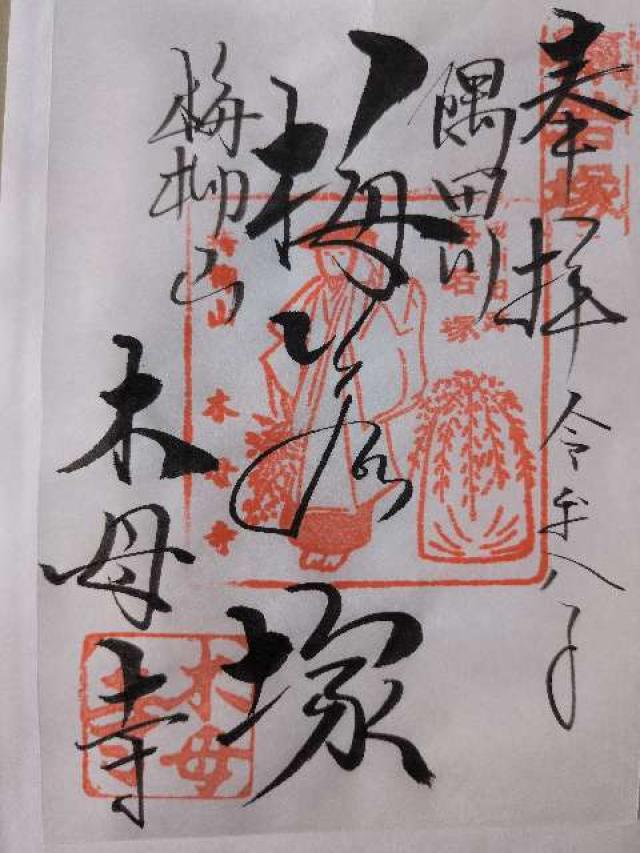 奉拝
令和八年
隅田川
梅若塚
梅柳山
木母寺
梅若塚
梅若塚
木母寺
木母寺